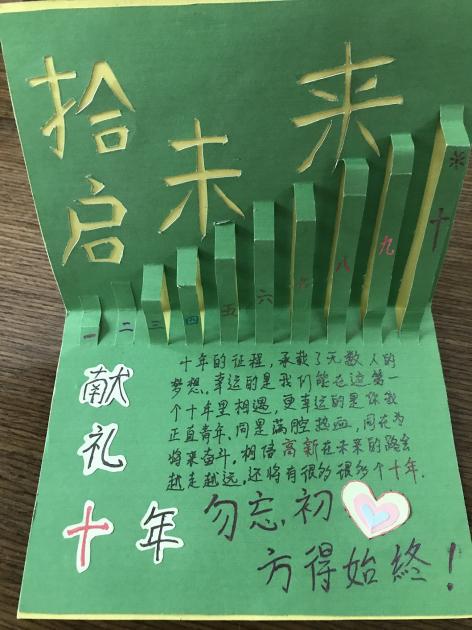 拾启未来
一 二 三 四 五 六 七 八 九 十 ※
献礼十年
十年的征程,承载了无数人的
梦想,幸运的是我们能在这第一
个十年里相遇,更幸运的是你我
正直青年、同是满腔热血,同在为
将来奋斗,相信高新在未来的路会
越走越远,还将有很多很多个十年.
勿忘初
方得始終!